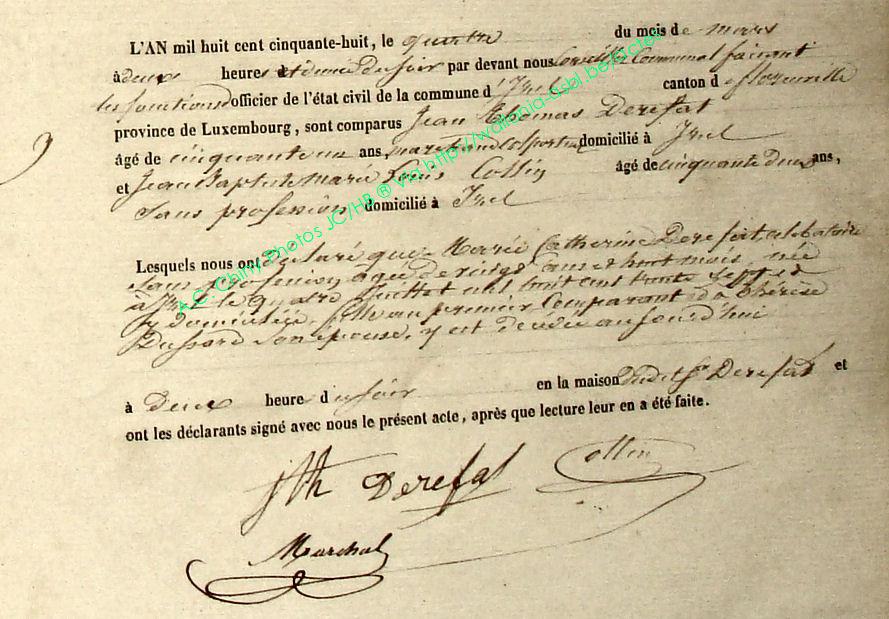 L'AN mil huit cent cinquante-huit, le du mois de mars
à deux heures et demie du soir par devant nous Conseiller Communal faisant
les fonctions d'officier de l'état civil de la commune d'Izel canton de florenville
province de Luxembourg, sont comparus Jean Thomas Derefat
âgé de cinquante un ans, marchand colporteur domicilié à Izel
et Jean Baptiste Marie Louis Collin âgé de cinquante deux ans,
Sans profession domicilié à Izel
Lesquels nous ont déclaré que Marie Catherine Derefat, célibataire
sans profession agée de vingt ans et huit mois, née
à Izel le quatre Juillet mil huit cent trente sept et
y domiciliée, fille au premier Comparant et à Thérèse
Dussard son épouse, y est décédée aujourd'hui
à Deux heure du soir en la maison dudit Sr Derefat et
ont les déclarants signé avec nous le présent acte, après que lecture leur en a été faite.
Jth Derefat Collin
Marchal
A.C. Chiny Photos JC/HB ® via http://wallonia-asbl.be/actes